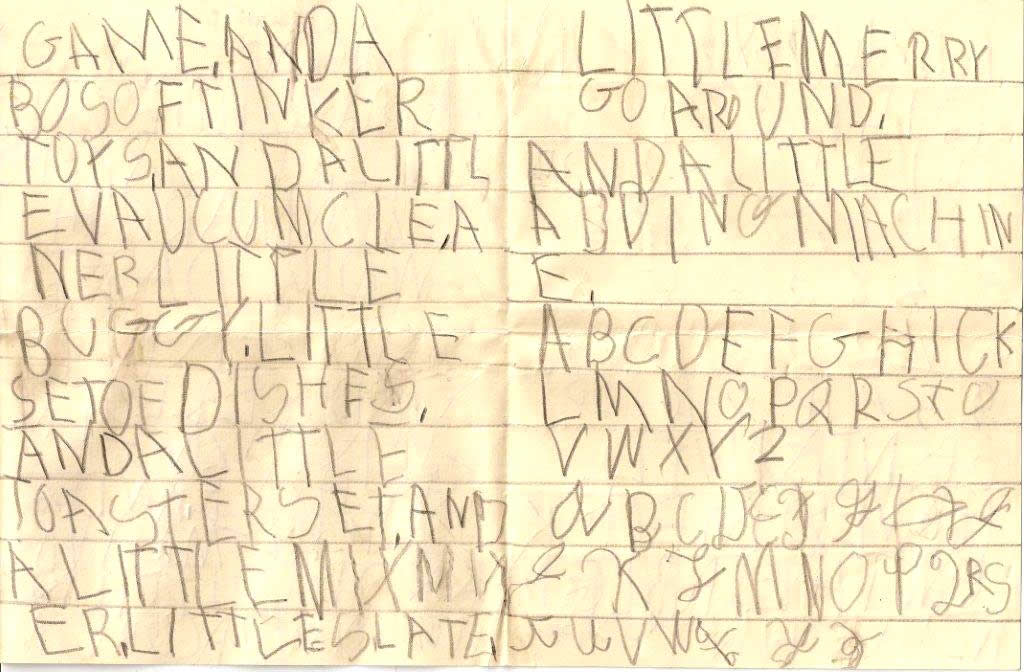 GAME,ANDA
BOSOFTINKER
TOYS,ANDALITTL
EVAUCUMCLEA
NERLITTLE
BUGGY,LITTLE
SETOFDISHES,
ANDALITTLE
TOASTERSET,AND
ALITTLEMIX
ER,LITTLESLATE,
LITTLEMERRY
GO AROUND,
ANDALITTLE
ADDINGMACHIN
E,
ABCDEFGHICK
LMNO,PQRSTU
VWXYZ
ABCDE
KLMNOPQRS
UVWX